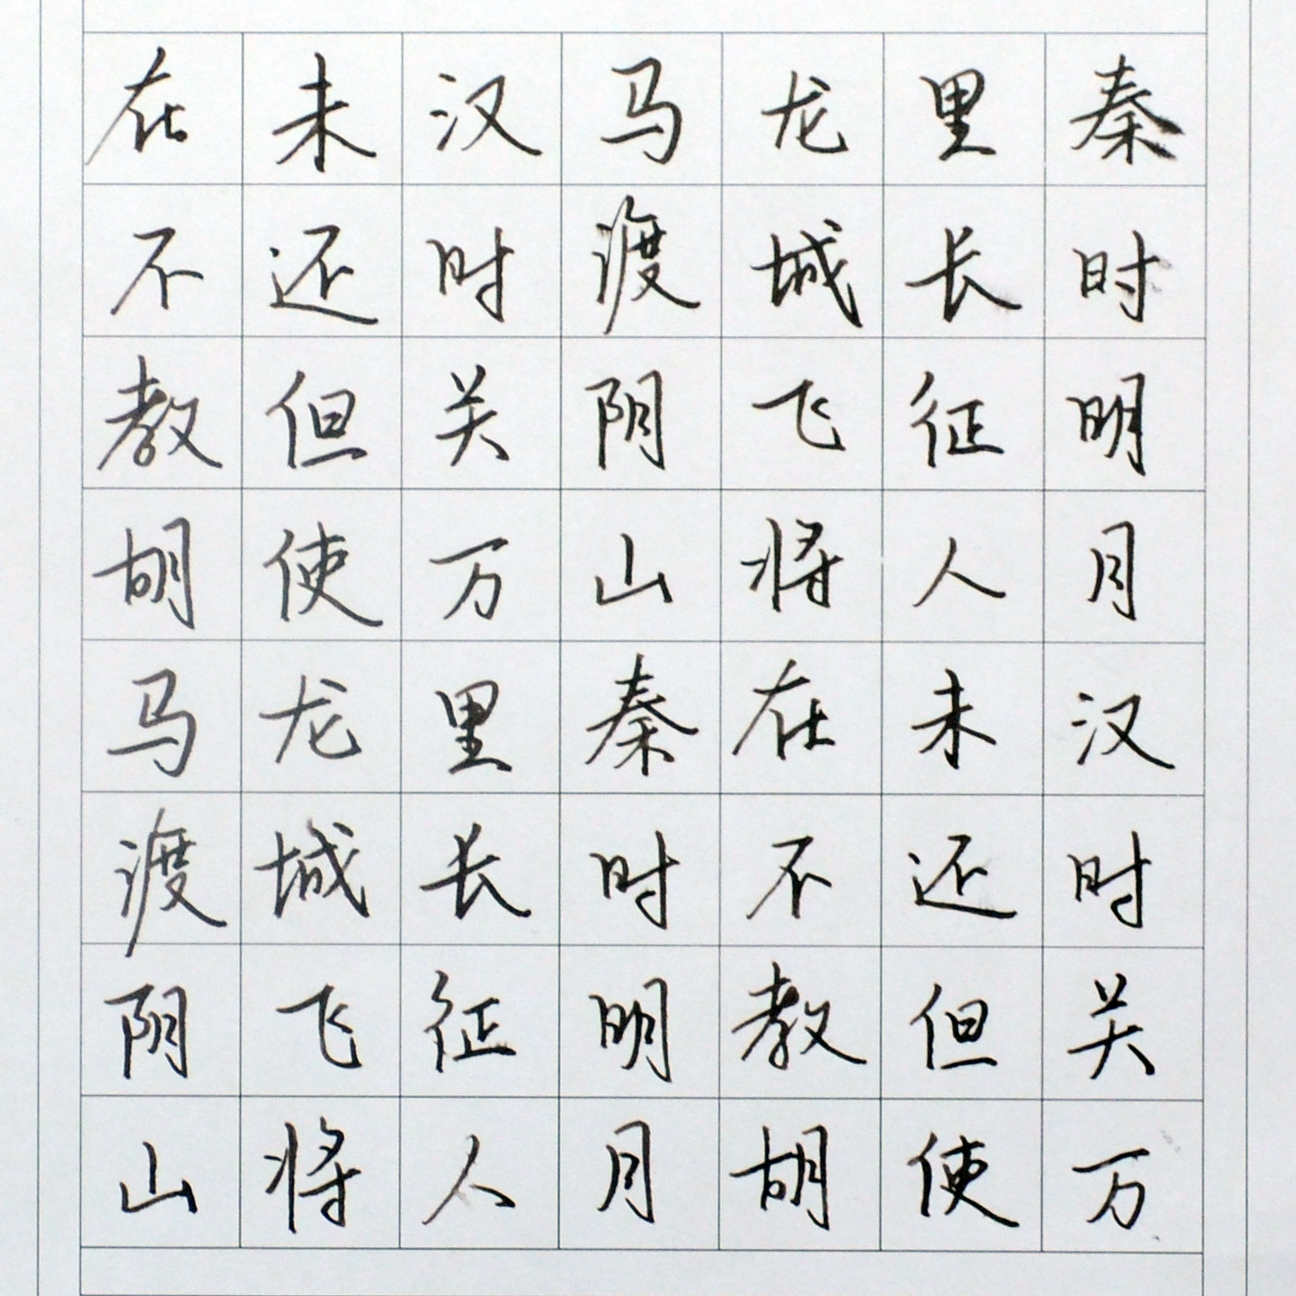 秦时明月汉时关万
里长征人未还但使
龙城飞将在不教胡
马渡阴山秦时明月
汉时关万里长征人
未还但使龙城飞将
在不教胡马渡阴山